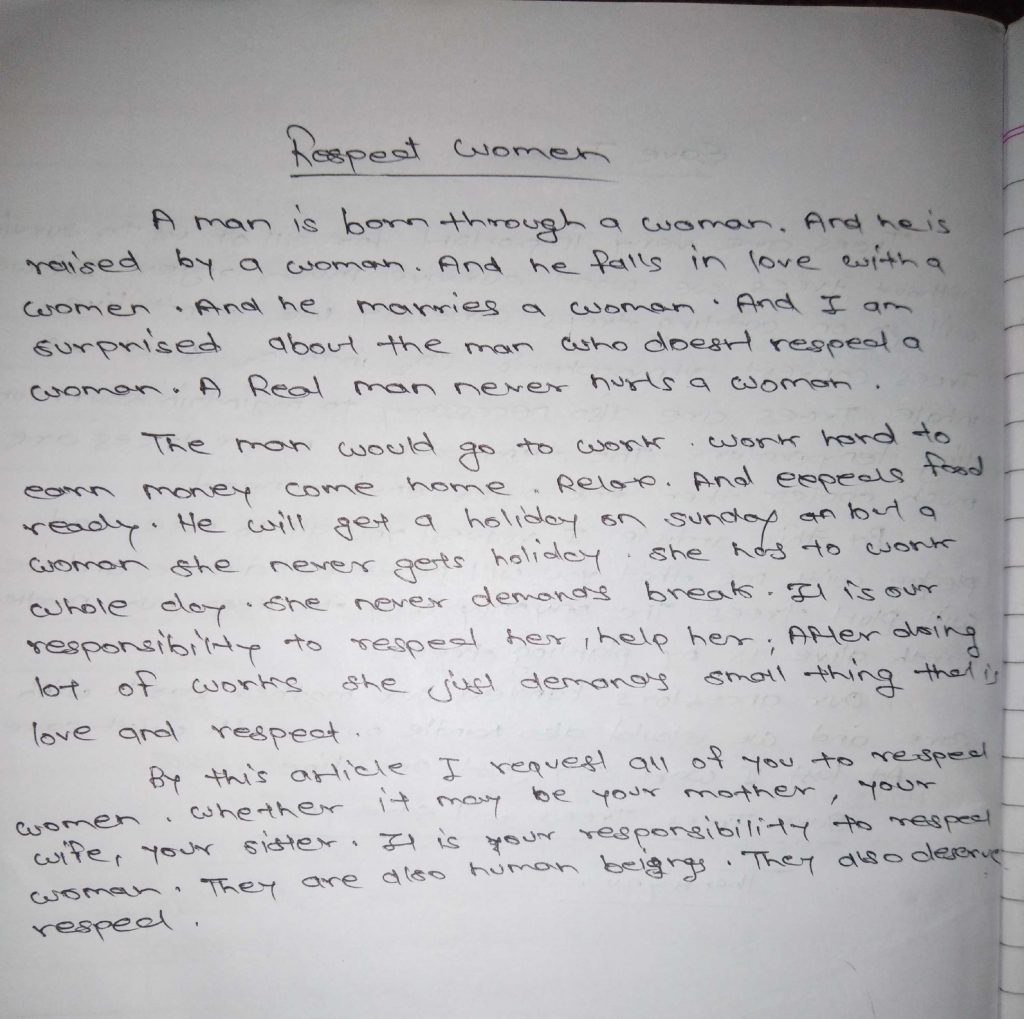 Respect women
A man is born through a woman. And he is
raised by a woman. And he falls in love with a
women. And he marries a woman. And I am
surprised about the man who doesn't respect a
woman. A Real man never hurts a woman.
The man would go to work. work hard to
earn money come home. Relax. And expects food
ready. He will get a holiday on sunday an but a
woman she never gets holiday. she has to work
whole day. she never demands break. It is our
responsibility to respect her, help her. After doing
lot of works she just demands small thing that is
love and respect.
By this article I request all of you to respect
women. whether it may be your mother, your
wife, your sister. It is your responsibility to respect
woman. They are also human beigngs. They also deserve
respect.